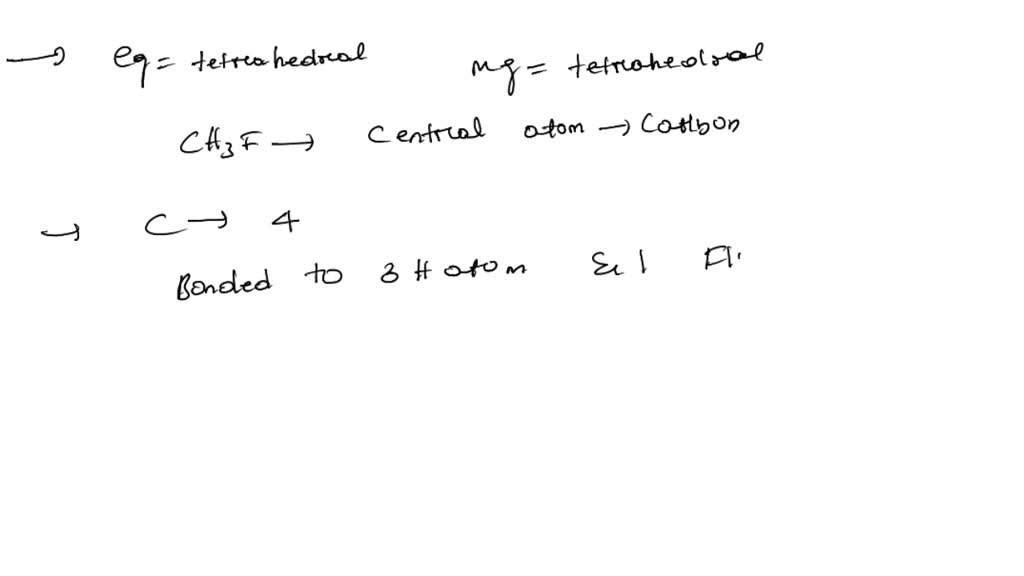 → eg = tetrahedral mg = tetrahedral
CH₃F → Central atom → Carbon
→ C → 4
Bonded to 3 H atom & 1 Fl.